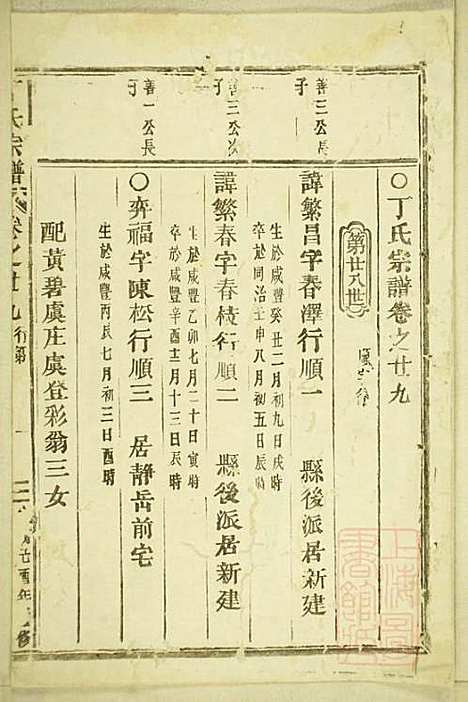 ○丁氏宗譜卷之廿九
第廿八世
善三公長子
諱繁昌字春澤行順一 縣後派居新建
生於咸豐癸丑二月初九日戌時
卒於同治壬申八月初五日辰時
善三公次子
諱繁春字春枝行順二 縣後派居新建
生於咸豐乙卯七月二十日寅時
卒於咸豐辛酉十二月十三日辰時
善一公長子
○弈福字陳松行順三 居靜岳前宅
生於咸豐丙辰七月初三日酉時
配黃碧虞庄虞登彩翁三女
丁氏宗譜 卷之廿九 行第 一
上海圖書館藏